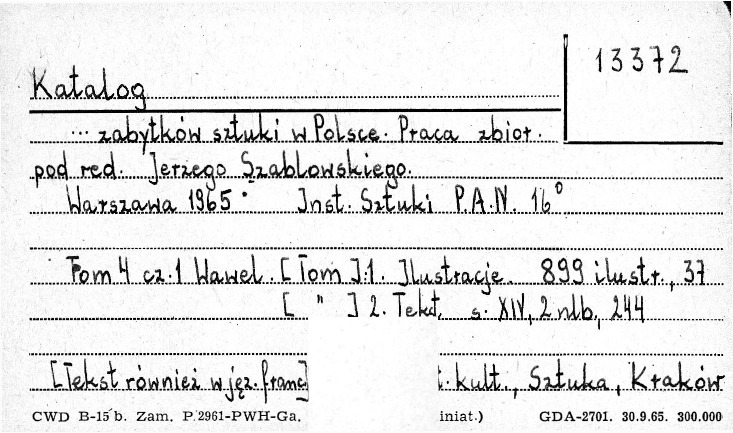 13372
Katalog
... zabytków sztuki w Polsce. Praca zbior.
pod red. Jerzego Szablowskiego.
Warszawa 1965. Inst. Sztuki P.A.N. 16°
Tom 4 cz. 1 Wawel. [Tom] 1. Ilustracje. 899 ilustr., 37
[ " ] 2. Tekst. s. XIV, 2 nlb, 244
[Tekst również w jęz. franc] t. kult., Sztuka, Kraków
CWD B-15 b. Zam. P. 2961-PWH-Ga. iniat.) GDA-2701. 30.9.65. 300.000